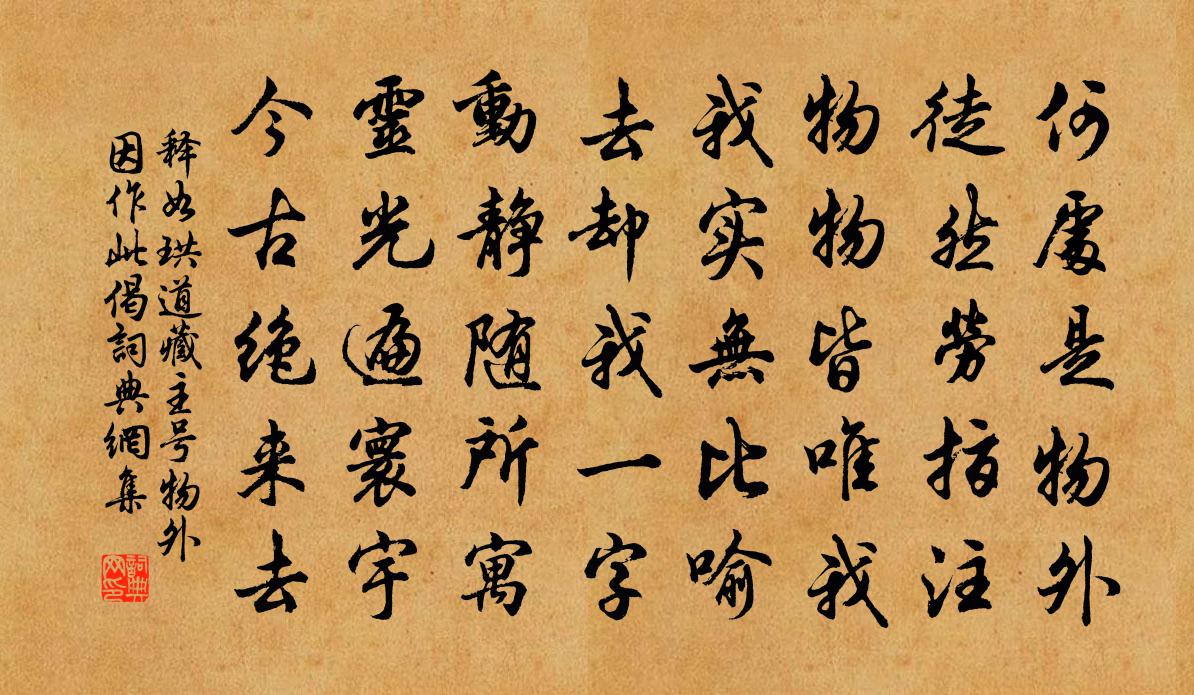 何處是物外
徒然勞指注
物物皆唯我
我实無比喻
去却我一字
動静随所寓
靈光遍寰宇
今古绝来去
释如珙道藏主号物外
因作此偈詞典網集
詞典
网印